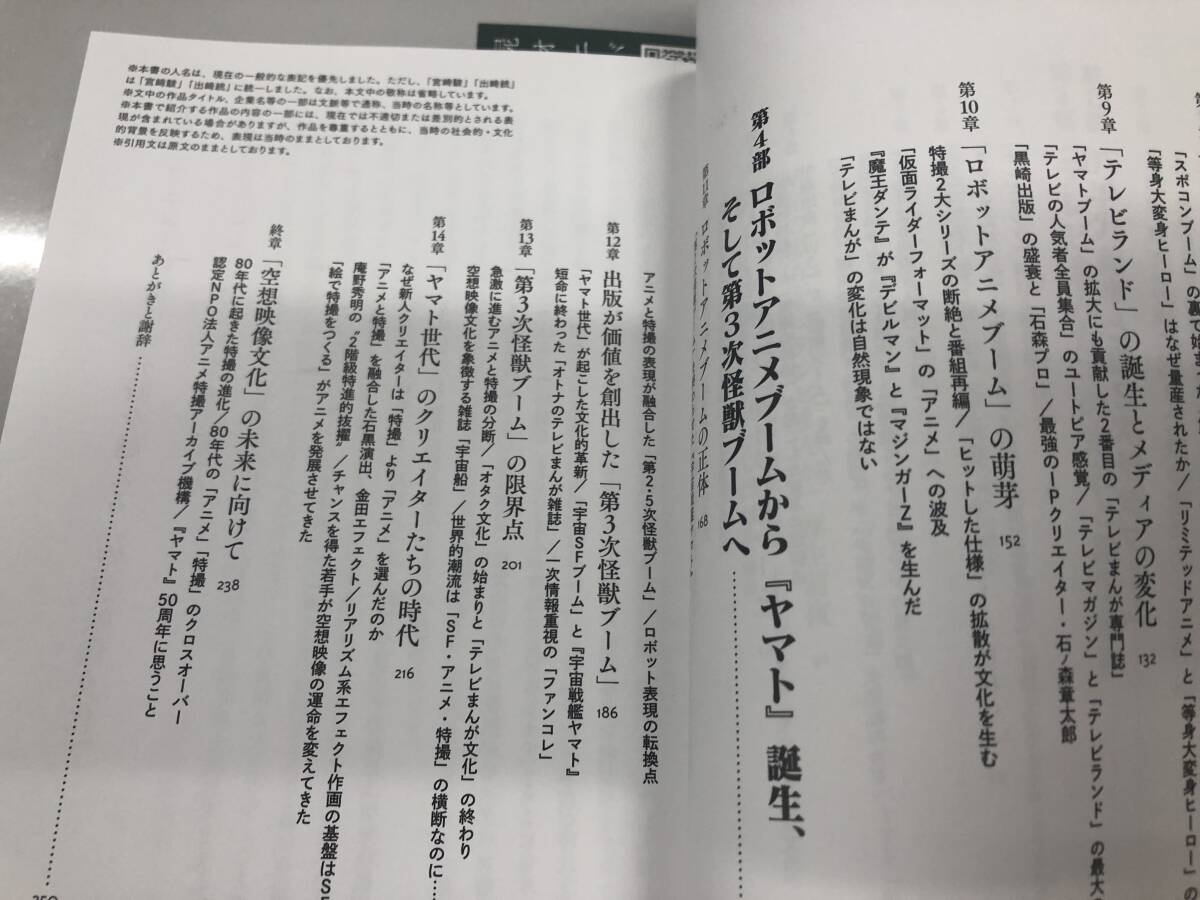 「スポコンブーム」の裏で始ま
「等身大変身ヒーロー」はなぜ量産されたか/「リミテッドアニメ」と「等身大変身ヒーロー」の
第9章 「テレビランド」の誕生とメディアの変化 132
「ヤマトブーム」の拡大にも貢献した2番目の「テレビまんが専門誌」
「テレビの人気者全員集合」のユートピア感覚/「テレビマガジン」と「テレビランド」の最大
「黒崎出版」の盛衰と「石森プロ」/最強のIPクリエイター・石ノ森章太郎
第10章 「ロボットアニメブーム」の萌芽 152
特撮2大シリーズの断絶と番組再編/「ヒットした仕様」の拡散が文化を生む
「仮面ライダーフォーマット」の「アニメ」への波及
『魔王ダンテ』が『デビルマン』と『マジンガーZ』を生んだ
「テレビまんが」の変化は自然現象ではない
第4部 ロボットアニメブームから『ヤマト』誕生、
そして第3次怪獣ブームへ
第11章 ロボットアニメブームの正体 168
アニメと特撮の表現が融合した「第2・5次怪獣ブーム」/ロボット表現の転換点
第12章 出版が価値を創出した「第3次怪獣ブーム」 186
「ヤマト世代」が起こした文化的革新/「宇宙SFブーム」と『宇宙戦艦ヤマト』
短命に終わった「オトナのテレビまんが雑誌」/一次情報重視の「ファンコレ」
第13章 「第3次怪獣ブーム」の限界点 201
急激に進むアニメと特撮の分断/「オタク文化」の始まりと「テレビまんが文化」の終わり
空想映像文化を象徴する雑誌「宇宙船」/世界的潮流は「SF・アニメ・特撮」の横断なのに……
第14章 「ヤマト世代」のクリエイターたちの時代 216
なぜ新人クリエイターは「特撮」より「アニメ」を選んだのか
「アニメと特撮」を融合した石黒演出、金田エフェクト/リアリズム系エフェクト作画の基盤はSF
庵野秀明の“2階級特進的抜擢”/チャンスを得た若手が空想映像の運命を変えてきた
「絵で特撮をつくる」がアニメを発展させてきた
終章 「空想映像文化」の未来に向けて 238
80年代に起きた特撮の進化/80年代の「アニメ」「特撮」のクロスオーバー
認定NPO法人アニメ特撮アーカイブ機構/『ヤマト』50周年に思うこと
あとがきと謝辞
※本書の人名は、現在の一般的な表記を優先しました。ただし、「宮﨑駿」「出﨑統」
は「宮崎駿」「出崎統」に統一しました。なお、本文中の敬称は省略しています。
※文中の作品タイトル、企業名等の一部は文脈等で通称、当時の名称等としています。
※本書で紹介する作品の内容の一部には、現在では不適切または差別的とされる表
現が含まれている場合がありますが、作品を尊重するとともに、当時の社会的・文化
的背景を反映するため、表現は当時のままとしております。
※引用文は原文のままとしております。